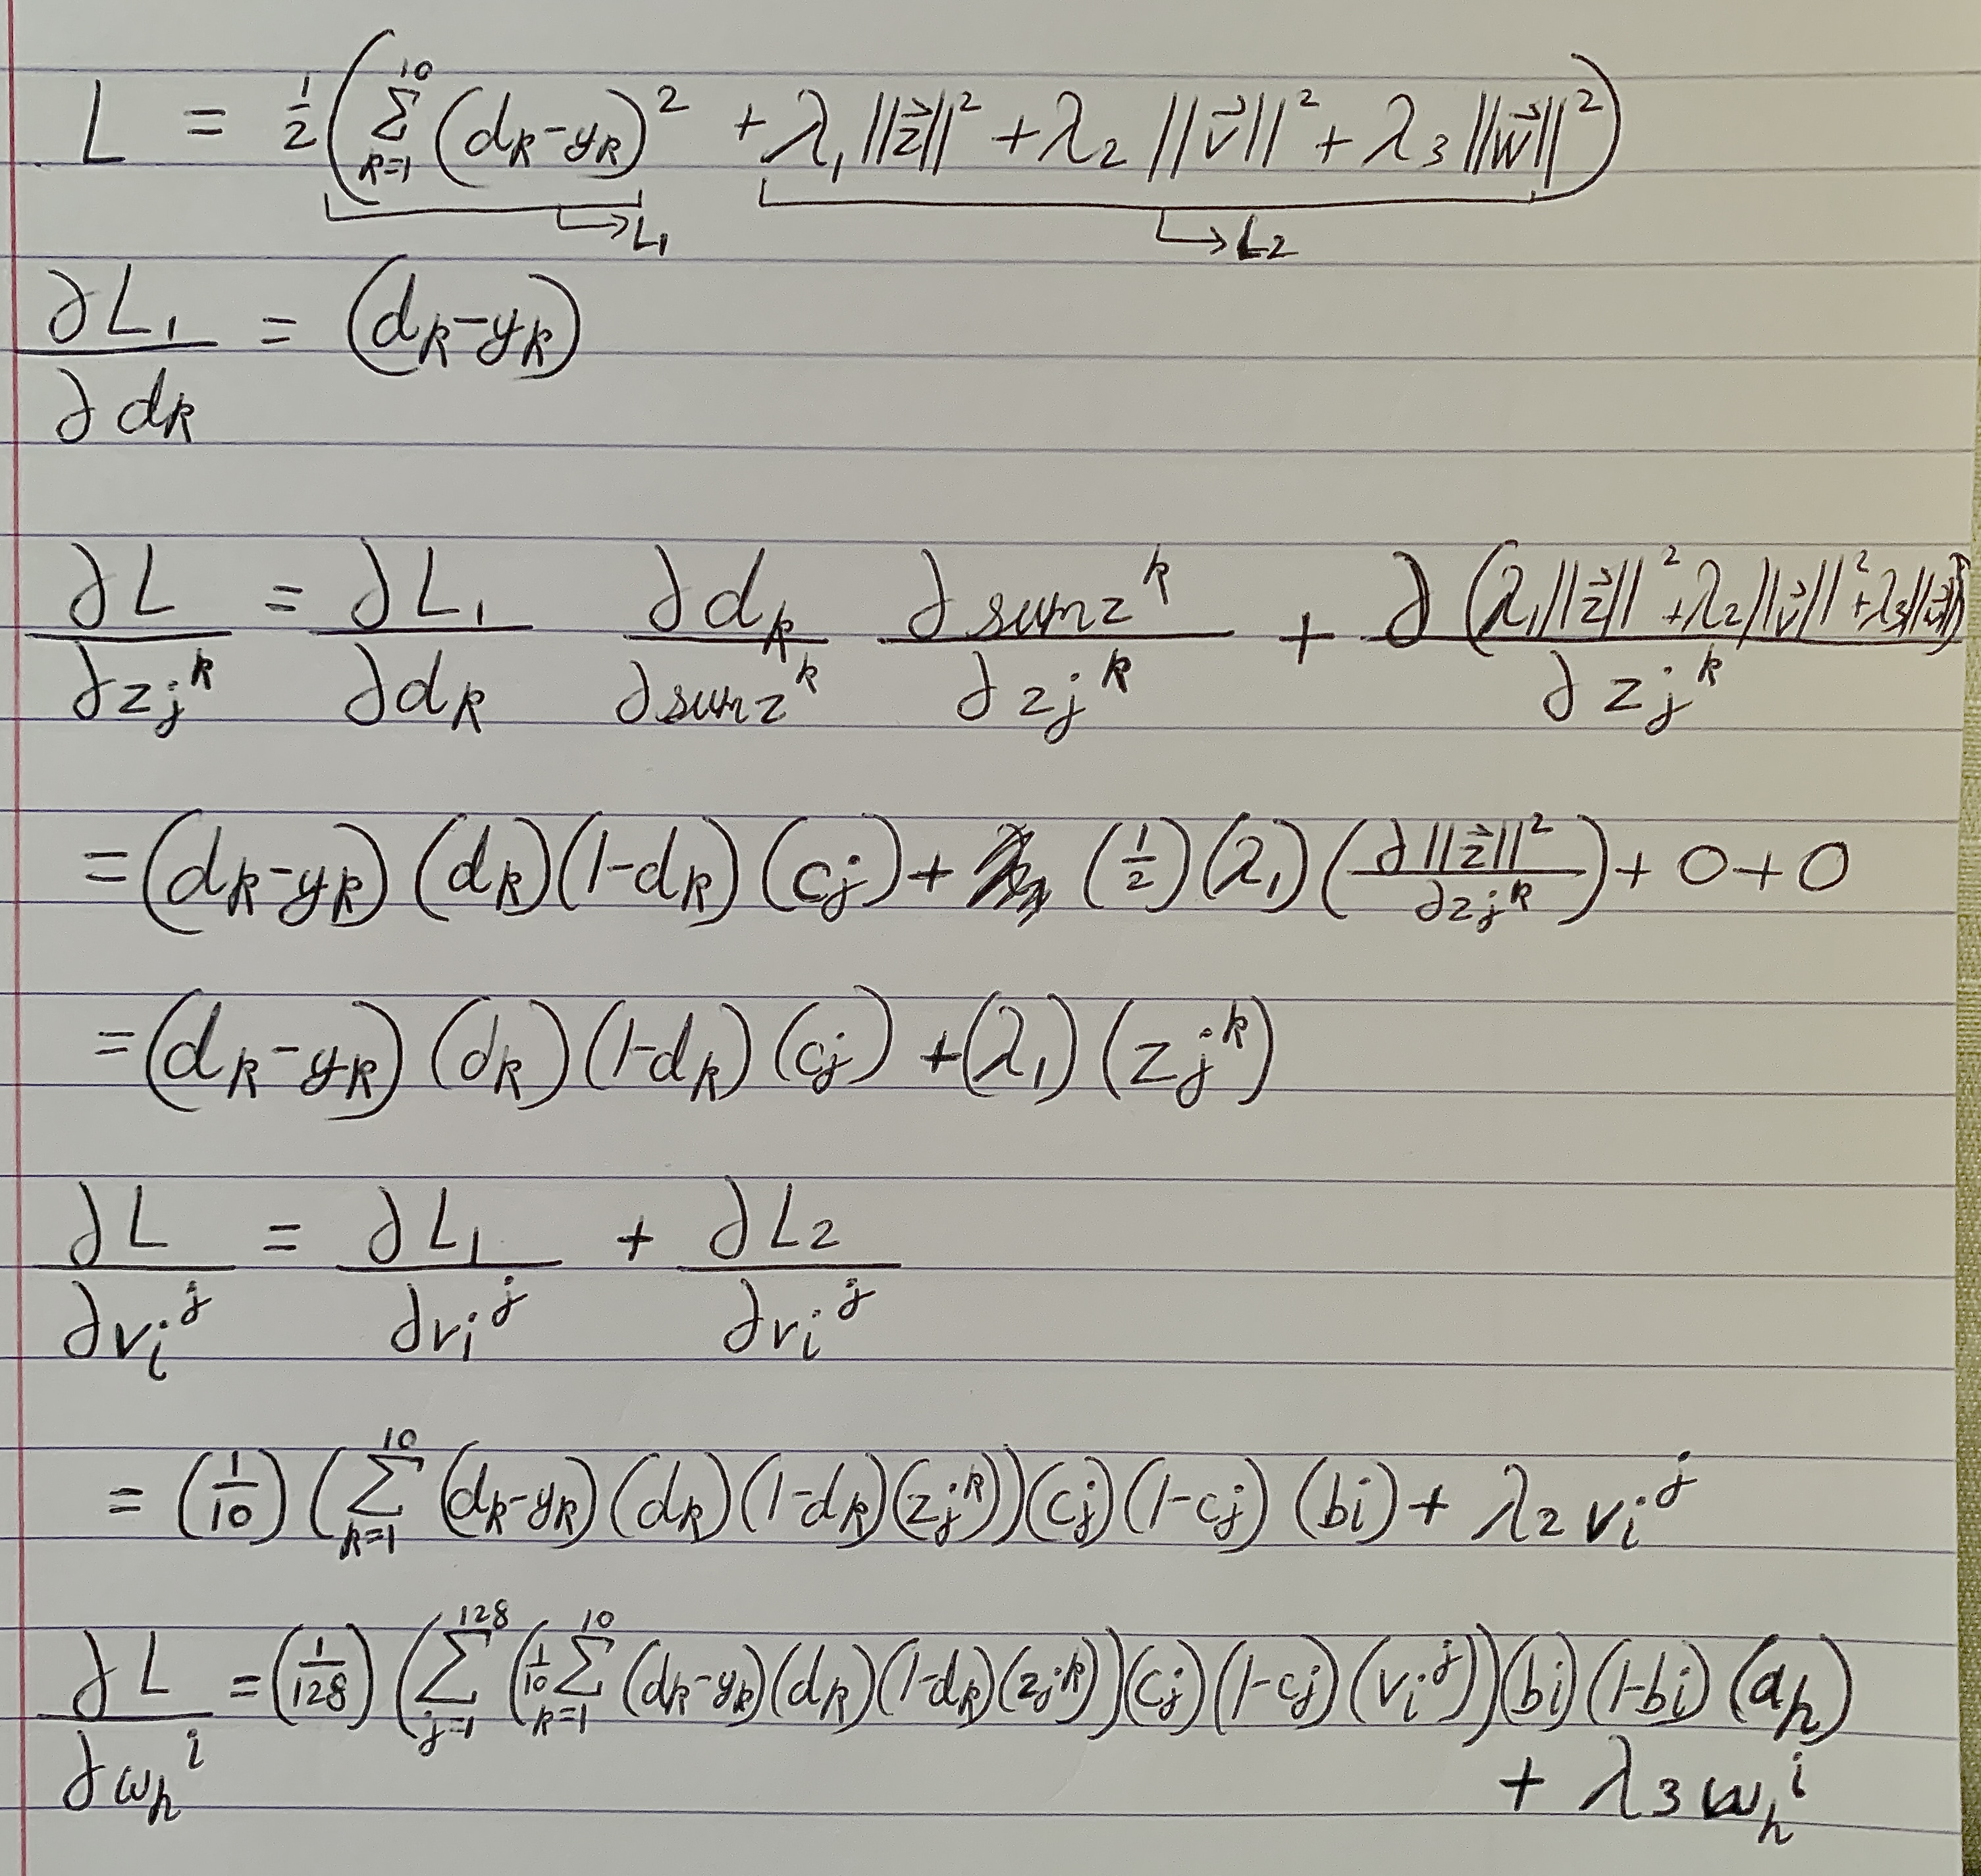 L = 1/2 ( Σ_{k=1}^{10} (d_k - y_k)^2 + λ_1 ||z⃗||^2 + λ_2 ||v⃗||^2 + λ_3 ||w⃗||^2 )
↳ L_1 ↳ L_2
∂L_1/∂d_k = (d_k - y_k)
∂L/∂z_j^k = ∂L_1/∂d_k ∂d_k/∂sumz^k ∂sumz^k/∂z_j^k + ∂(λ_1 ||z⃗||^2 + λ_2 ||v⃗||^2 + λ_3 ||w⃗||^2)/∂z_j^k
= (d_k - y_k) (d_k) (1 - d_k) (c_j) + (1/2) (λ_1) (∂||z⃗||^2/∂z_j^k) + 0 + 0
= (d_k - y_k) (d_k) (1 - d_k) (c_j) + (λ_1) (z_j^k)
∂L/∂v_i^j = ∂L_1/∂v_i^j + ∂L_2/∂v_i^j
= (1/10) ( Σ_{k=1}^{10} (d_k - y_k) (d_k) (1 - d_k) (z_j^k)) (c_j) (1 - c_j) (b_i) + λ_2 v_i^j
∂L/∂w_h^i = (1/128) ( Σ_{j=1}^{128} ( 1/10 Σ_{k=1}^{10} (d_k - y_k) (d_k) (1 - d_k) (z_j^k)) (c_j) (1 - c_j) (v_i^j)) (b_i) (1 - b_i) (a_h)
+ λ_3 w_h^i